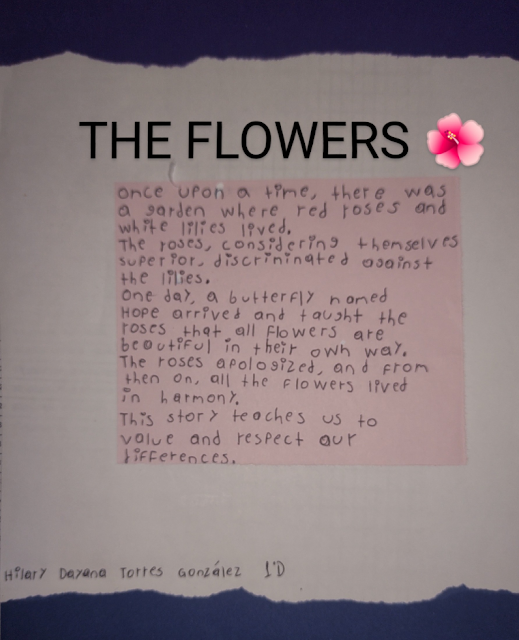 THE FLOWERS 🌺
once upon a time, there was
a garden where red roses and
white lilies lived.
The roses, considering themselves
superior, discrininated against
the lilies.
One day, a butterfly named
Hope arrived and taught the
roses that all flowers are
beautiful in their own way.
The roses apologized, and from
then on, all the flowers lived
in harmony.
This story teaches us to
value and respect our
differences.
Hilary Dayana Torres González 1°D